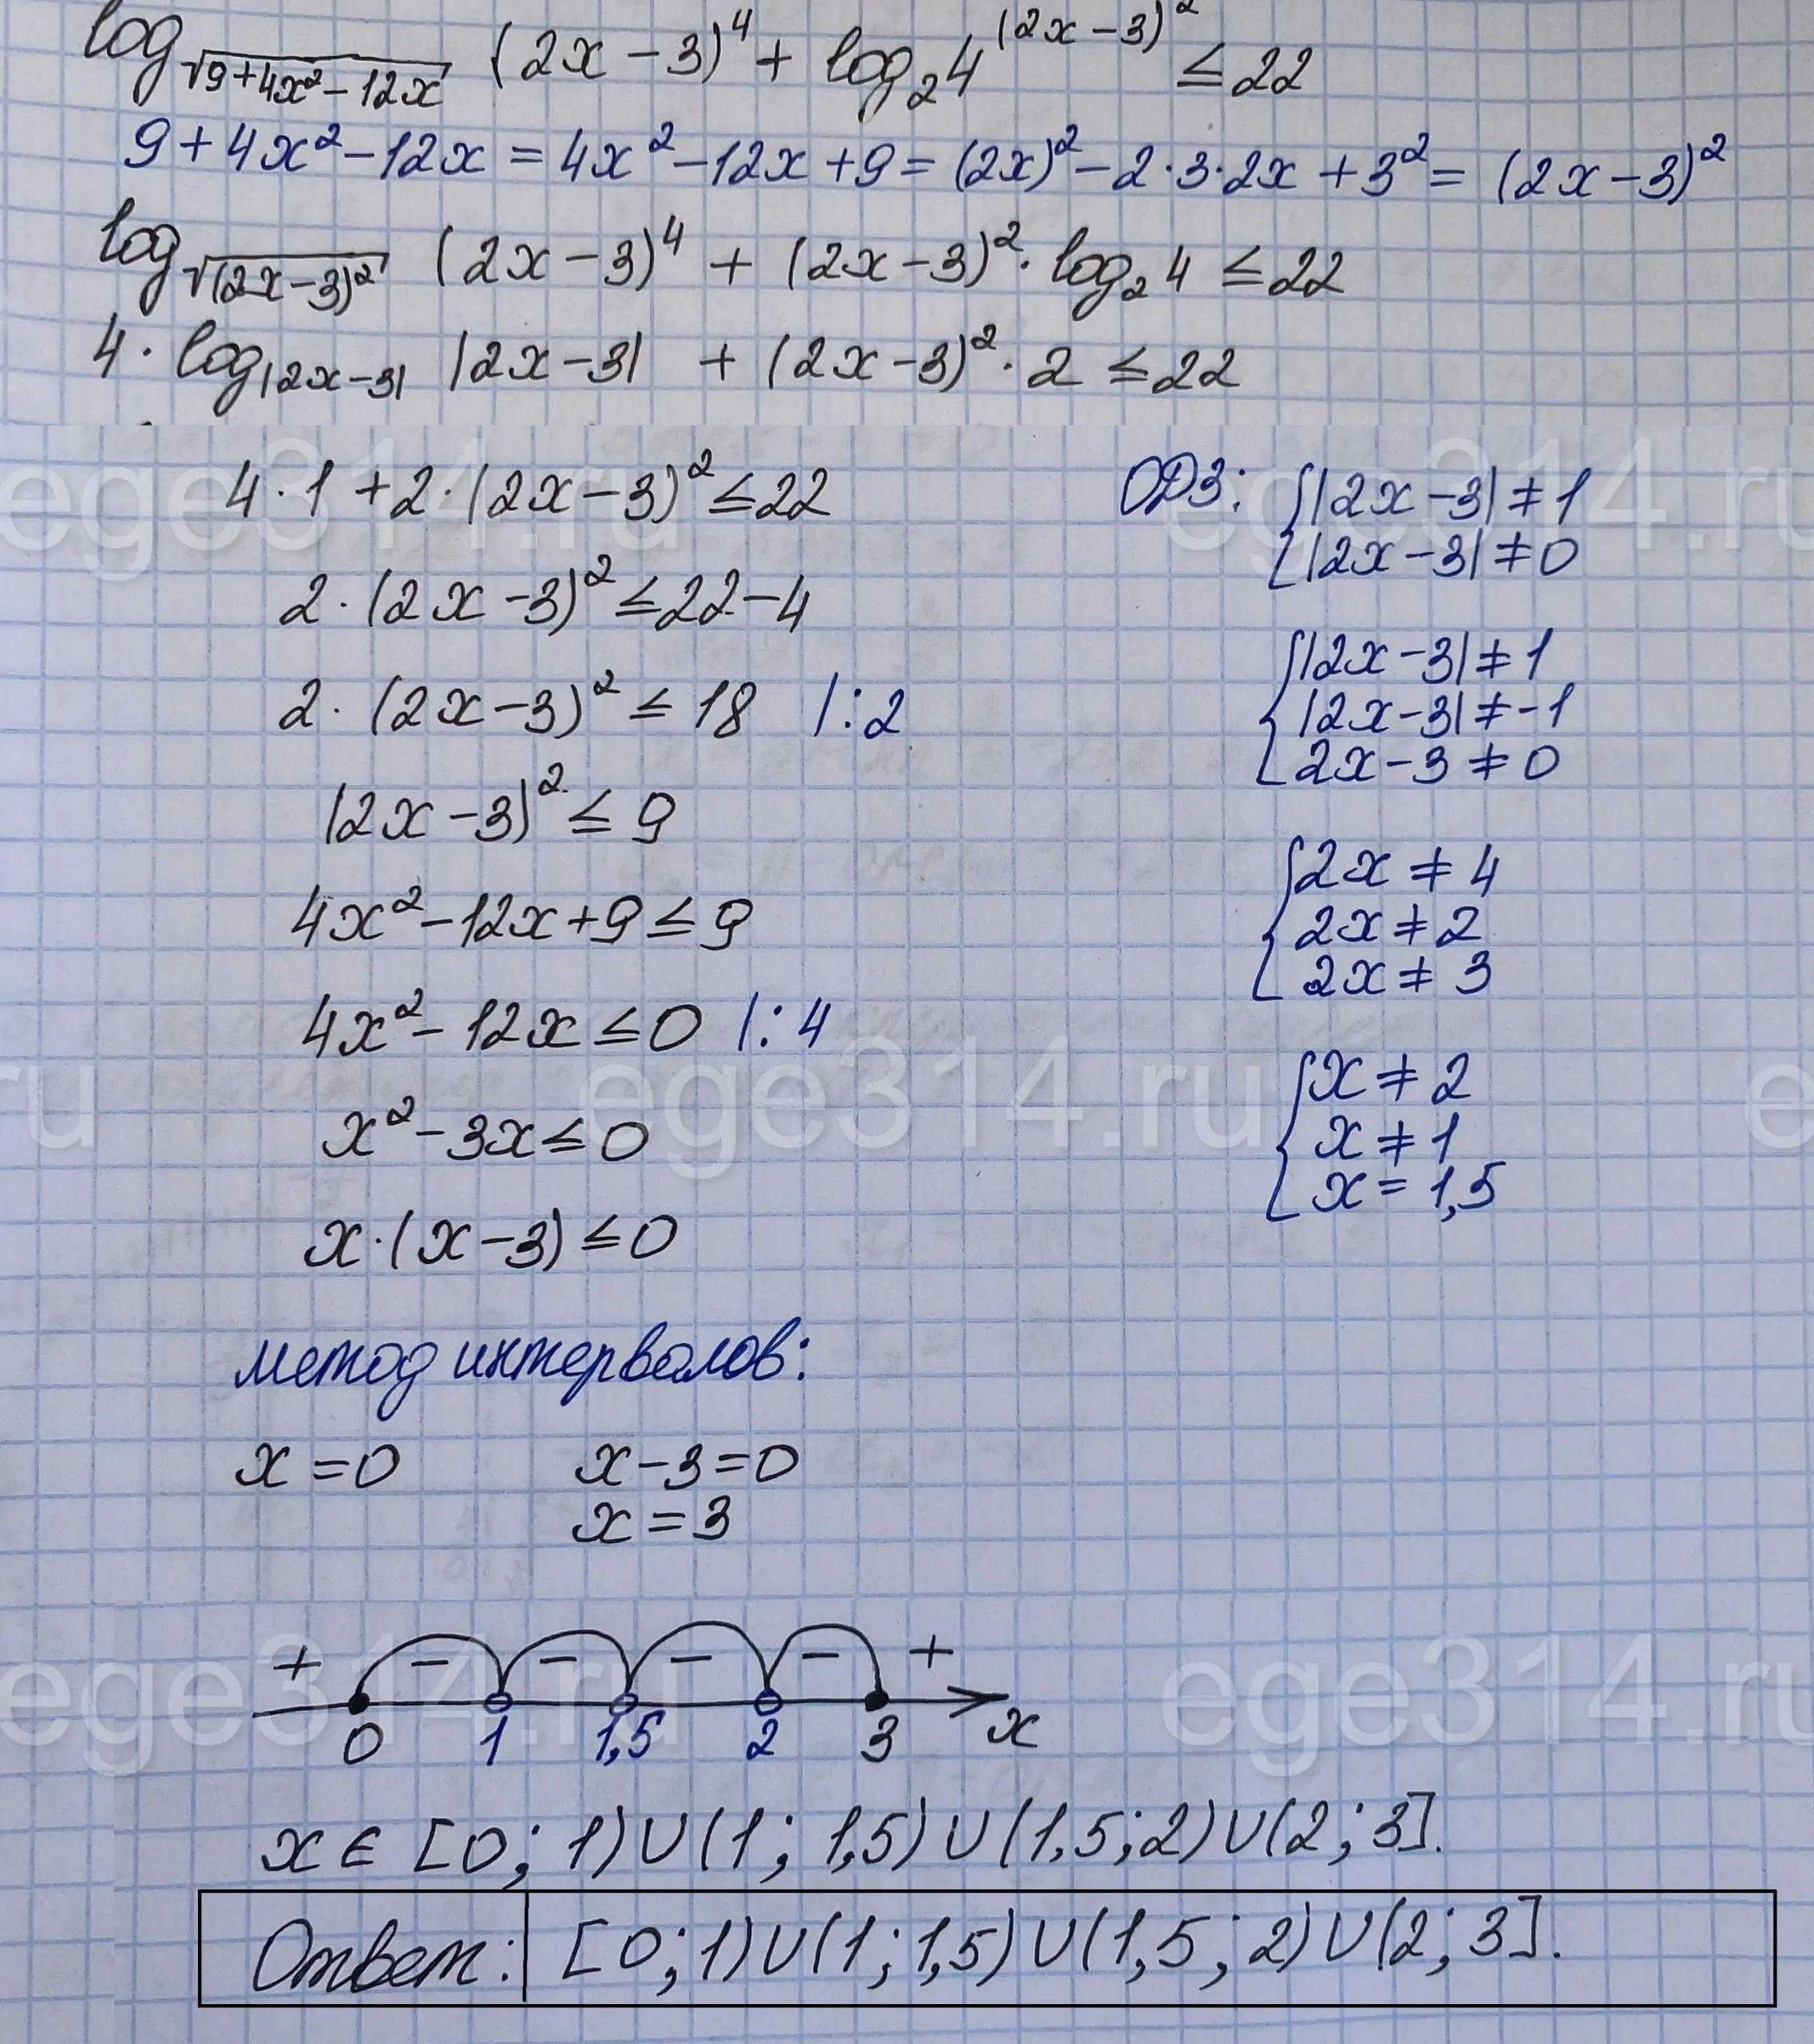 log_√(9+4x²-12x) (2x-3)⁴ + log₂4^(2x-3)² ≤ 22
9+4x²-12x = 4x²-12x+9 = (2x)²-2·3·2x+3² = (2x-3)²
log_√((2x-3)²) (2x-3)⁴ + (2x-3)²·log₂4 ≤ 22
4·log_|2x-3| |2x-3| + (2x-3)²·2 ≤ 22
4·1+2·(2x-3)² ≤ 22
2·(2x-3)² ≤ 22-4
2·(2x-3)² ≤ 18 |:2
(2x-3)² ≤ 9
4x²-12x+9 ≤ 9
4x²-12x ≤ 0 |:4
x²-3x ≤ 0
x·(x-3) ≤ 0
ОДЗ: { |2x-3| ≠ 1
|2x-3| ≠ 0
{ |2x-3| ≠ 1
|2x-3| ≠ -1
2x-3 ≠ 0
{ 2x ≠ 4
2x ≠ 2
2x ≠ 3
{ x ≠ 2
x ≠ 1
x = 1,5
метод интервалов:
x=0 x-3=0
x=3
+ - - - - +
0 1 1,5 2 3 x
x ∈ [0; 1)∪(1; 1,5)∪(1,5;2)∪(2; 3].
Ответ: [0;1)∪(1;1,5)∪(1,5;2)∪(2;3].
ege314.ru
ege314.ru
ru
ege314.ru
e
ege314.ru
ege314.ru